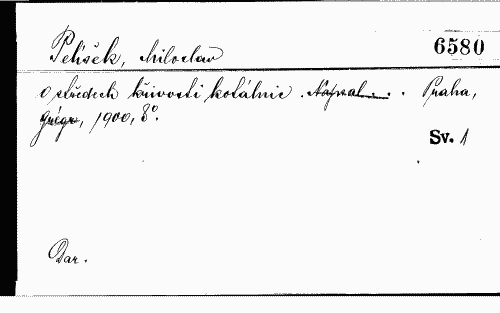 Pelíšek, Miloslav 6580
O středech křivosti kotálnic. Napsal . . . Praha,
Grégr, 1900, 8°.
Sv. 1
Dar.